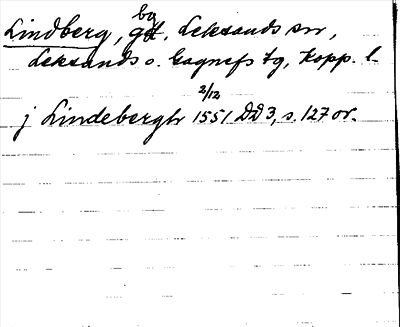 Lindberg, by, Leksands sn,
Leksands o. Gagnefs tg, Kopp. l.
2/12
j Lindebergh 1551 DD 3, s. 127 or.